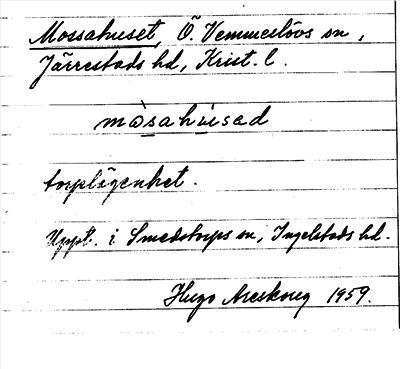 Mossahuset, Ö. Vemmerlövs sn,
Järrestads hd, Krist. l.
mòsahúsad
torplägenhet.
Uppt. i Smedstorps sn, Ingelstads hd.
Hugo Areskoug 1959.